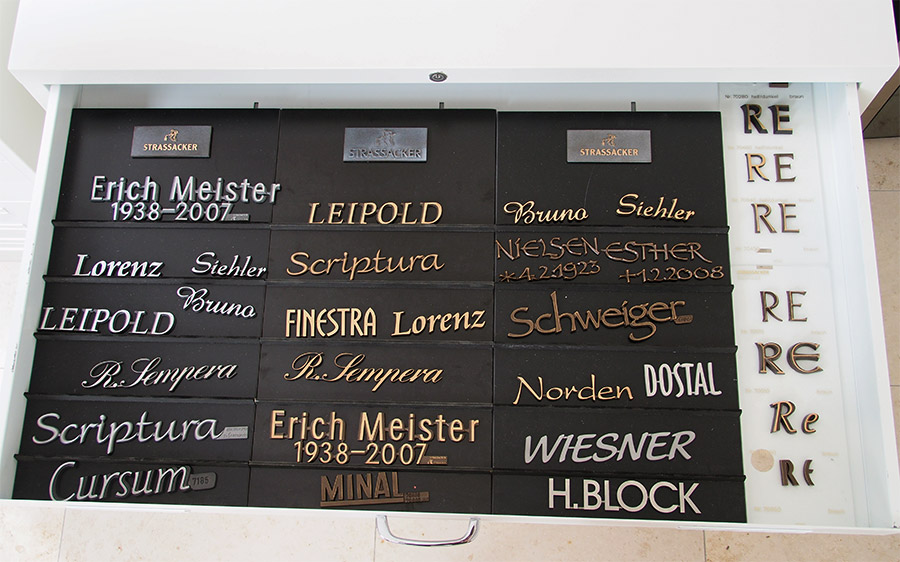 STRASSACKER
Erich Meister
1938–2007
Lorenz Siehler
LEIPOLD Bruno
R. Sempera
Scriptura
Cursum 7185
STRASSACKER
LEIPOLD
Scriptura
FINESTRA Lorenz
R. Sempera
Erich Meister
1938–2007
MINAL
STRASSACKER
Bruno Siehler
NIELSEN ESTHER
*4.2.1923 +1.2.2008
Schweiger
Norden DOSTAL
WIESNER
H.BLOCK
RE
RE
RE
RE
RE
Re
RE